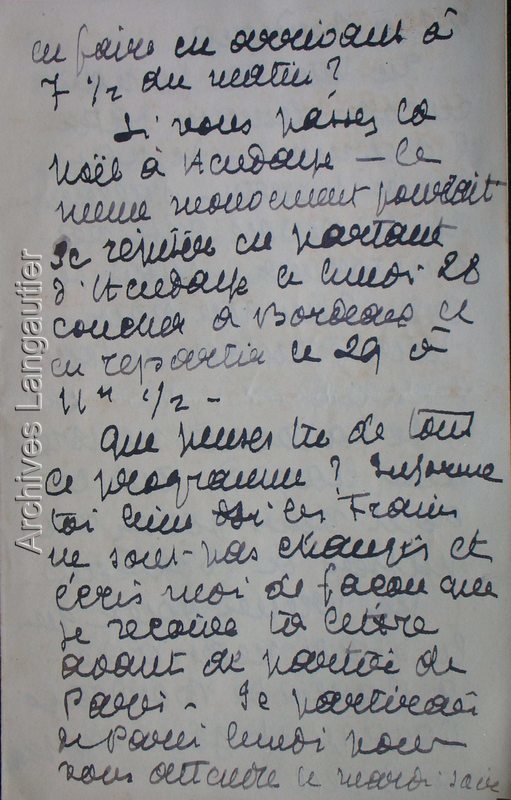 en faire en arrivant à
7 1/2 du matin ?
Si vous passez la
Noël à Hendaye — le
même mouvement pourrait
se répéter en partant
d'Hendaye le lundi 28
coucher à Bordeaux et
en repartir le 29 à
11 h 1/2 –
Que penses tu de tout
ce programme ? Informe
toi bien si les Trains
ne sont pas changés et
écris moi de façon que
je reçoive ta lettre
avant de partir de
Paris – Je partirais
de Paris lundi pour
vous attendre le mardi soir
Archives Langautier